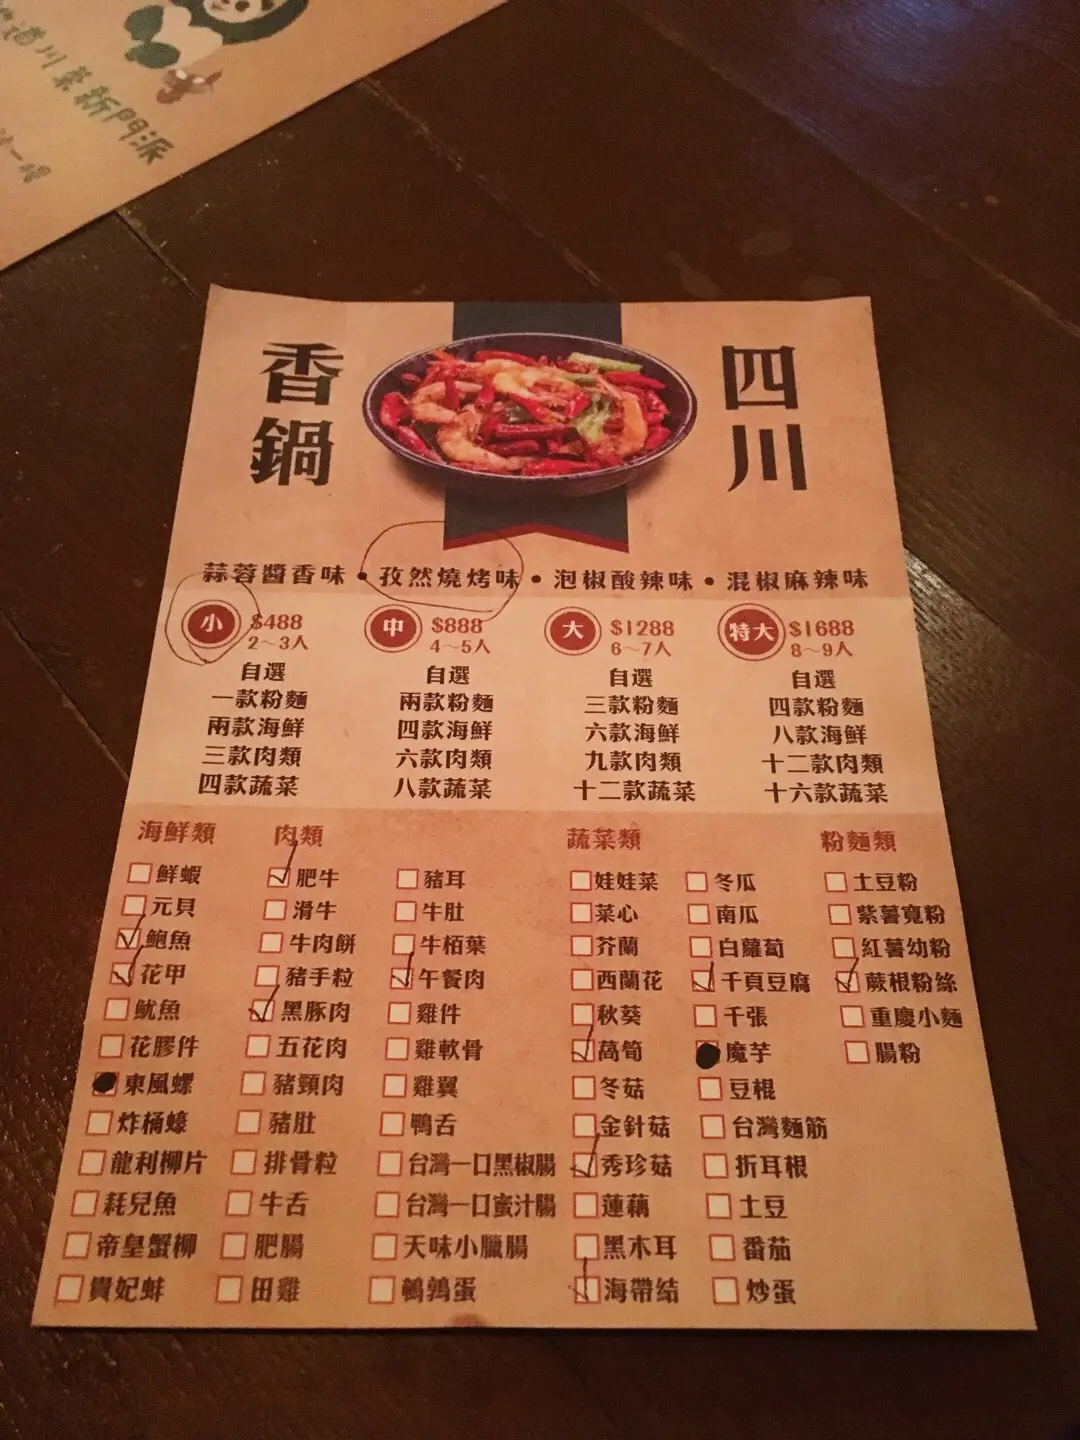 道川菜新門派
四川
香鍋
蒜蓉醬香味 • 孜然燒烤味 • 泡椒酸辣味 • 混椒麻辣味
小 $488 2～3人
自選
一款粉麵
兩款海鮮
三款肉類
四款蔬菜
中 $888 4～5人
自選
兩款粉麵
四款海鮮
六款肉類
八款蔬菜
大 $1288 6～7人
自選
三款粉麵
六款海鮮
九款肉類
十二款蔬菜
特大 $1688 8～9人
自選
四款粉麵
八款海鮮
十二款肉類
十六款蔬菜
海鮮類
鮮蝦
元貝
鮑魚
花甲
魷魚
花膠件
東風螺
炸桶蠔
龍利柳片
耗兒魚
帝皇蟹柳
貴妃蚌
肉類
肥牛
滑牛
牛肉餅
豬手粒
黑豚肉
五花肉
豬頸肉
豬肚
排骨粒
牛舌
肥腸
田雞
豬耳
牛肚
牛栢葉
午餐肉
雞件
雞軟骨
雞翼
鴨舌
台灣一口黑椒腸
台灣一口蜜汁腸
天味小臘腸
鵪鶉蛋
蔬菜類
娃娃菜
菜心
芥蘭
西蘭花
秋葵
萵筍
冬菇
金針菇
秀珍菇
蓮藕
黑木耳
海帶結
冬瓜
南瓜
白蘿蔔
千頁豆腐
千張
魔芋
豆棍
台灣麵筋
折耳根
土豆
番茄
炒蛋
粉麵類
土豆粉
紫薯寬粉
紅薯幼粉
蕨根粉絲
重慶小麵
腸粉